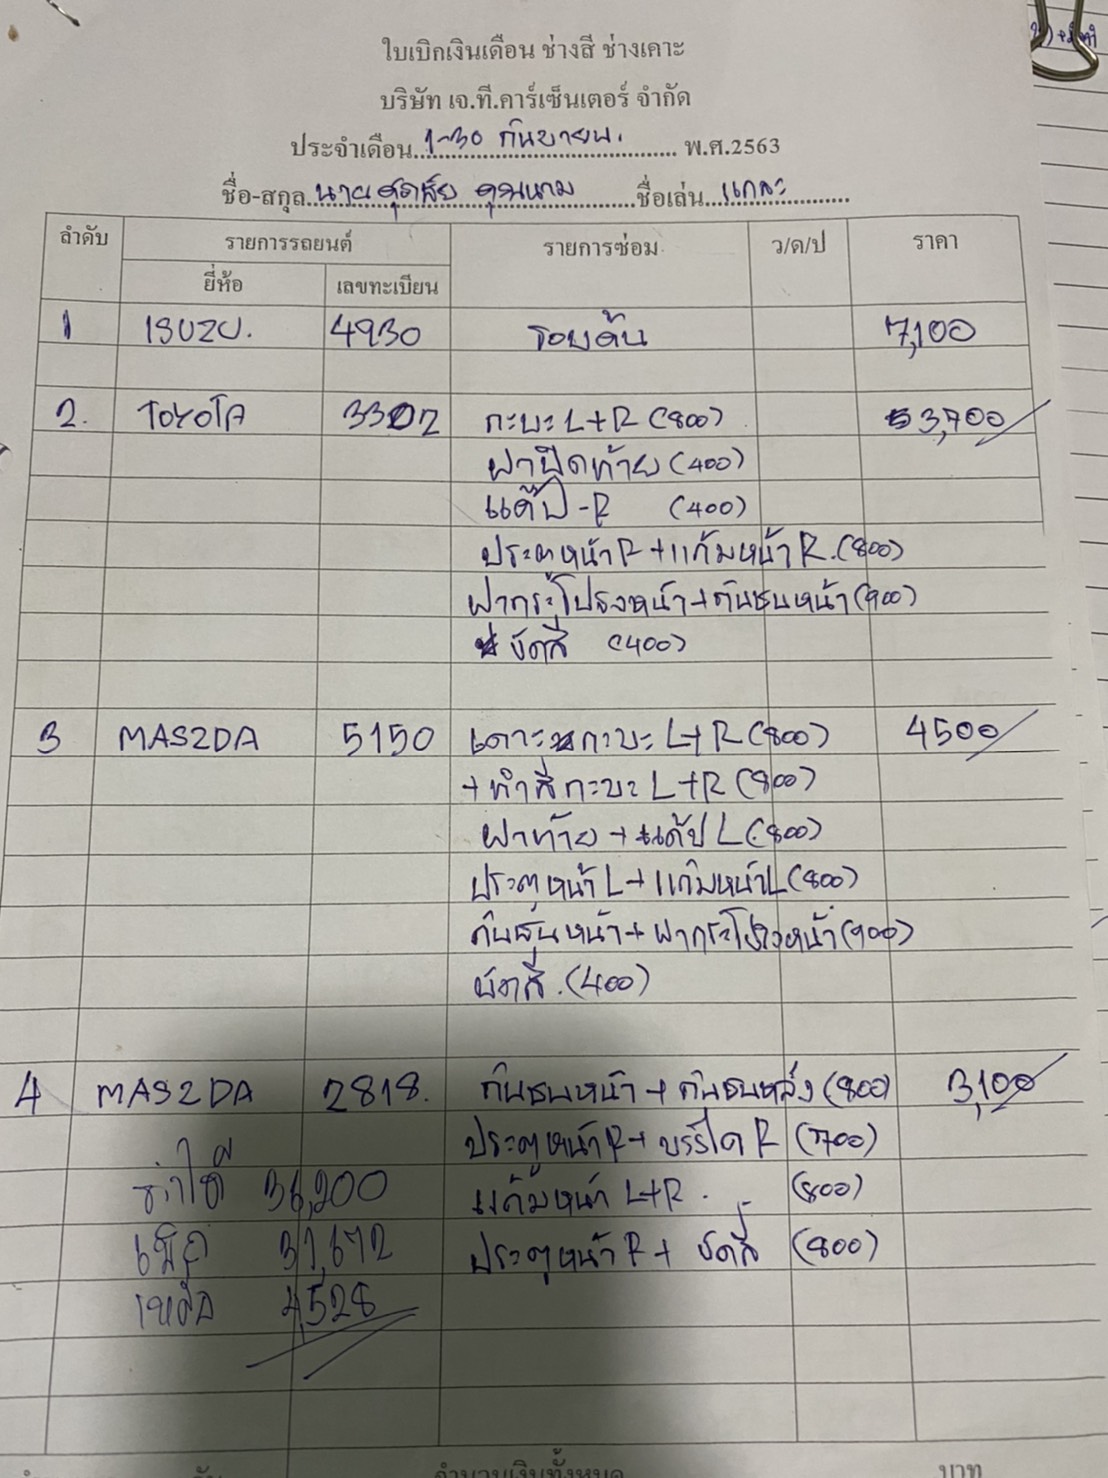 ใบเบิกเงินเดือน ช่างสี ช่างเคาะ
บริษัท เจ.ที.คาร์เซ็นเตอร์ จำกัด
ประจำเดือน 1-30 กันยายน. พ.ศ.2563
ชื่อ-สกุล นาย ชื่อเล่น แกละ
ลำดับ รายการรถยนต์ รายการซ่อม ว/ด/ป ราคา
ยี่ห้อ เลขทะเบียน
1 ISUZU. 4930 รอบคัน 7,100
2. TOYOTA 3302 กะบะ L+R (800) 3,700
ฝาปิดท้าย (400)
แค๊ป - R (400)
ประตูหน้า R + แก้มหน้า R. (800)
ฝากระโปรงหน้า + กันชนหน้า (900)
ขัดสี (400)
3 MASZDA 5150 เคาะ กะบะ L+R (800) 4500
+ ทำสีกะบะ L+R (800)
ฝาท้าย + แค้ป L (800)
ประตูหน้า L + แก้มหน้า L (800)
กันชนหน้า + ฝากระโปรงหน้า (900)
ขัดสี. (400)
4 MASZDA 2818. กันชนหน้า + กันชนหลัง (800) 3,100
ประตูหน้า R + บรรได R (700)
ทำได้ 36,200 แก้มหน้า L+R. (800)
เบิก 31,672 ประตูหน้า R + ขัดสี (800)
เหลือ 4,528
จำนวนเงินทั้งหมด บาท